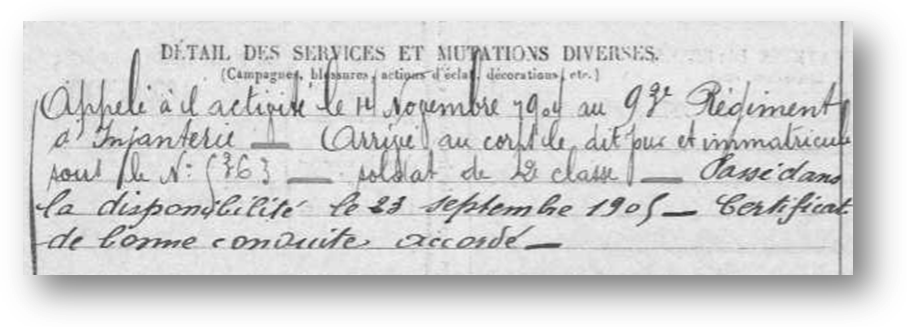 DÉTAIL DES SERVICES ET MUTATIONS DIVERSES.
(Campagnes, blessures, actions d'éclat, décorations, etc.)
Appelé à l'activité le Novembre 1904 au Régiment
d'Infanterie — Arrivé au corps le dit jour et immatriculé
sous le N° — soldat de 2e classe — Passé dans
la disponibilité le 23 septembre 1905 — Certificat
de bonne conduite accordé —